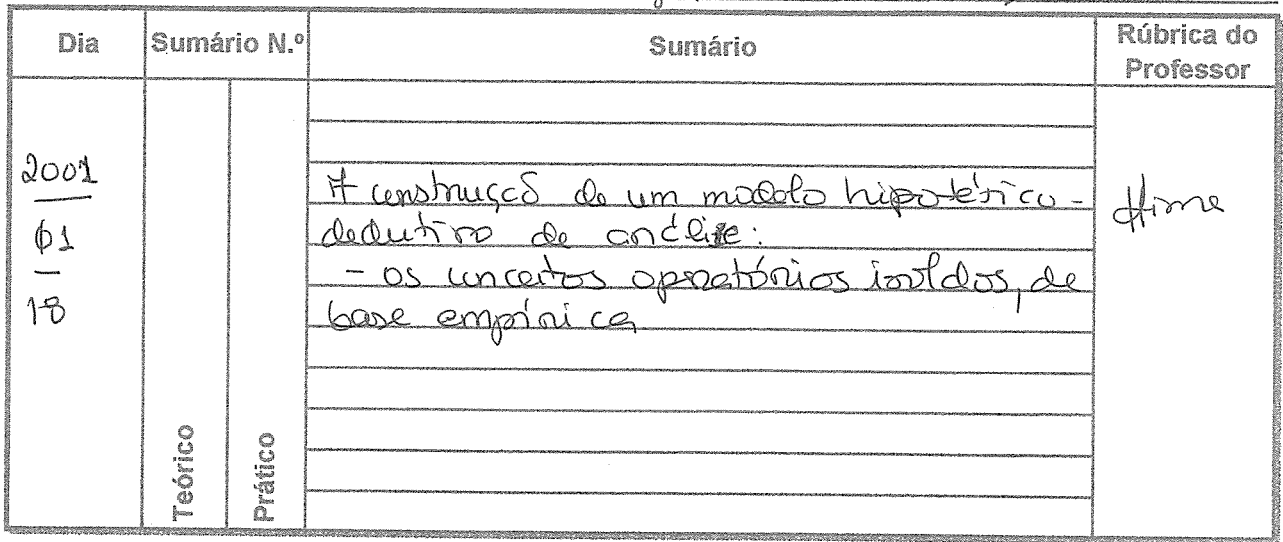 Dia Sumário N.º Sumário Rúbrica do Professor
2001
01
18
A construção de um modelo hipotético-
dedutivo de análise:
- os conceitos operatórios isolados, de
base empírica
Teórico
Prático